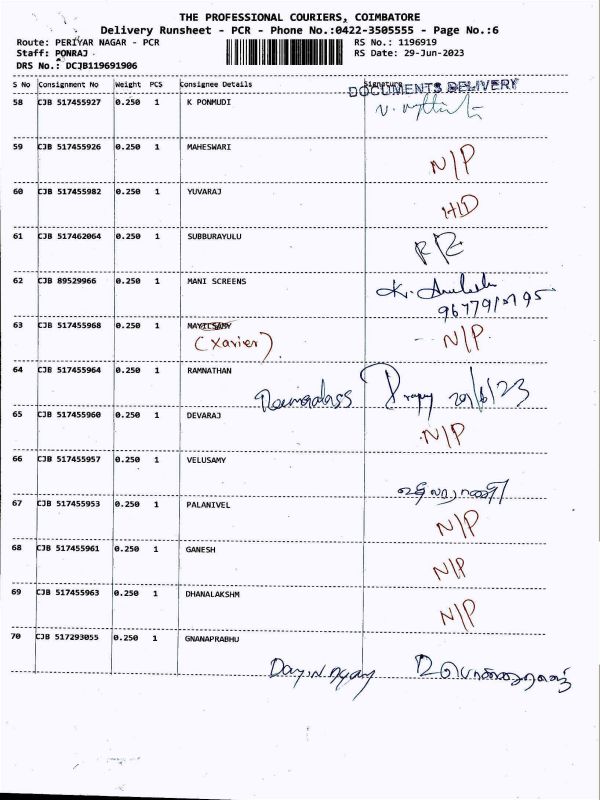 THE PROFESSIONAL COURIERS, COIMBATORE
Delivery Runsheet - PCR - Phone No.:0422-3505555 - Page No.:6
Route: PERIYAR NAGAR - PCR RS No.: 1196919
Staff: PONRAJ RS Date: 29-Jun-2023
DRS No.: DCJB119691906
S No Consignment No Weight PCS Consignee Details Signature
DOCUMENTS DELIVERY
58 CJB 517455927 0.250 1 K PONMUDI
59 CJB 517455926 0.250 1 MAHESWARI
N/P
60 CJB 517455982 0.250 1 YUVARAJ
H/D
61 CJB 517462064 0.250 1 SUBBURAYULU
62 CJB 89529966 0.250 1 MANI SCREENS
K.
63 CJB 517455968 0.250 1 MAYILSAMY
(Xavier) N/P
64 CJB 517455964 0.250 1 RAMNATHAN
29/6/23
65 CJB 517455960 0.250 1 DEVARAJ
N/P
66 CJB 517455957 0.250 1 VELUSAMY
67 CJB 517455953 0.250 1 PALANIVEL
N/P
68 CJB 517455961 0.250 1 GANESH
N/P
69 CJB 517455963 0.250 1 DHANALAKSHM
N/P
70 CJB 517293055 0.250 1 GNANAPRABHU